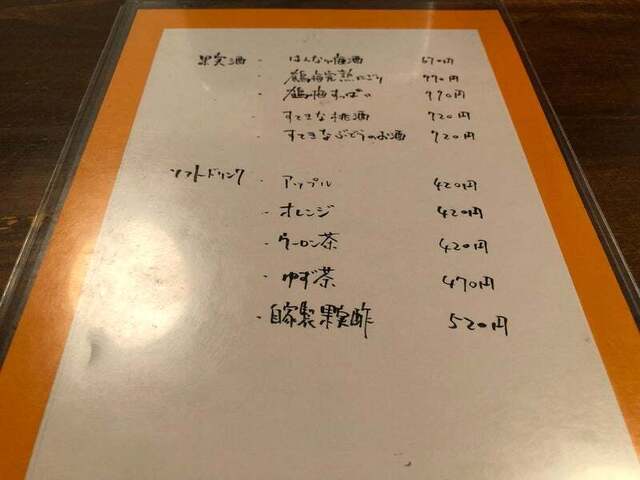 果実酒 - はんなり梅酒 670円
- 鶴梅完熟にごり 770円
- 鶴梅すっぱい 770円
- すてきな桃酒 720円
- すてきなぶどうのお酒 720円
ソフトドリンク - アップル 420円
- オレンジ 420円
- ウーロン茶 420円
- ゆず茶 470円
- 自家製果実酢 520円